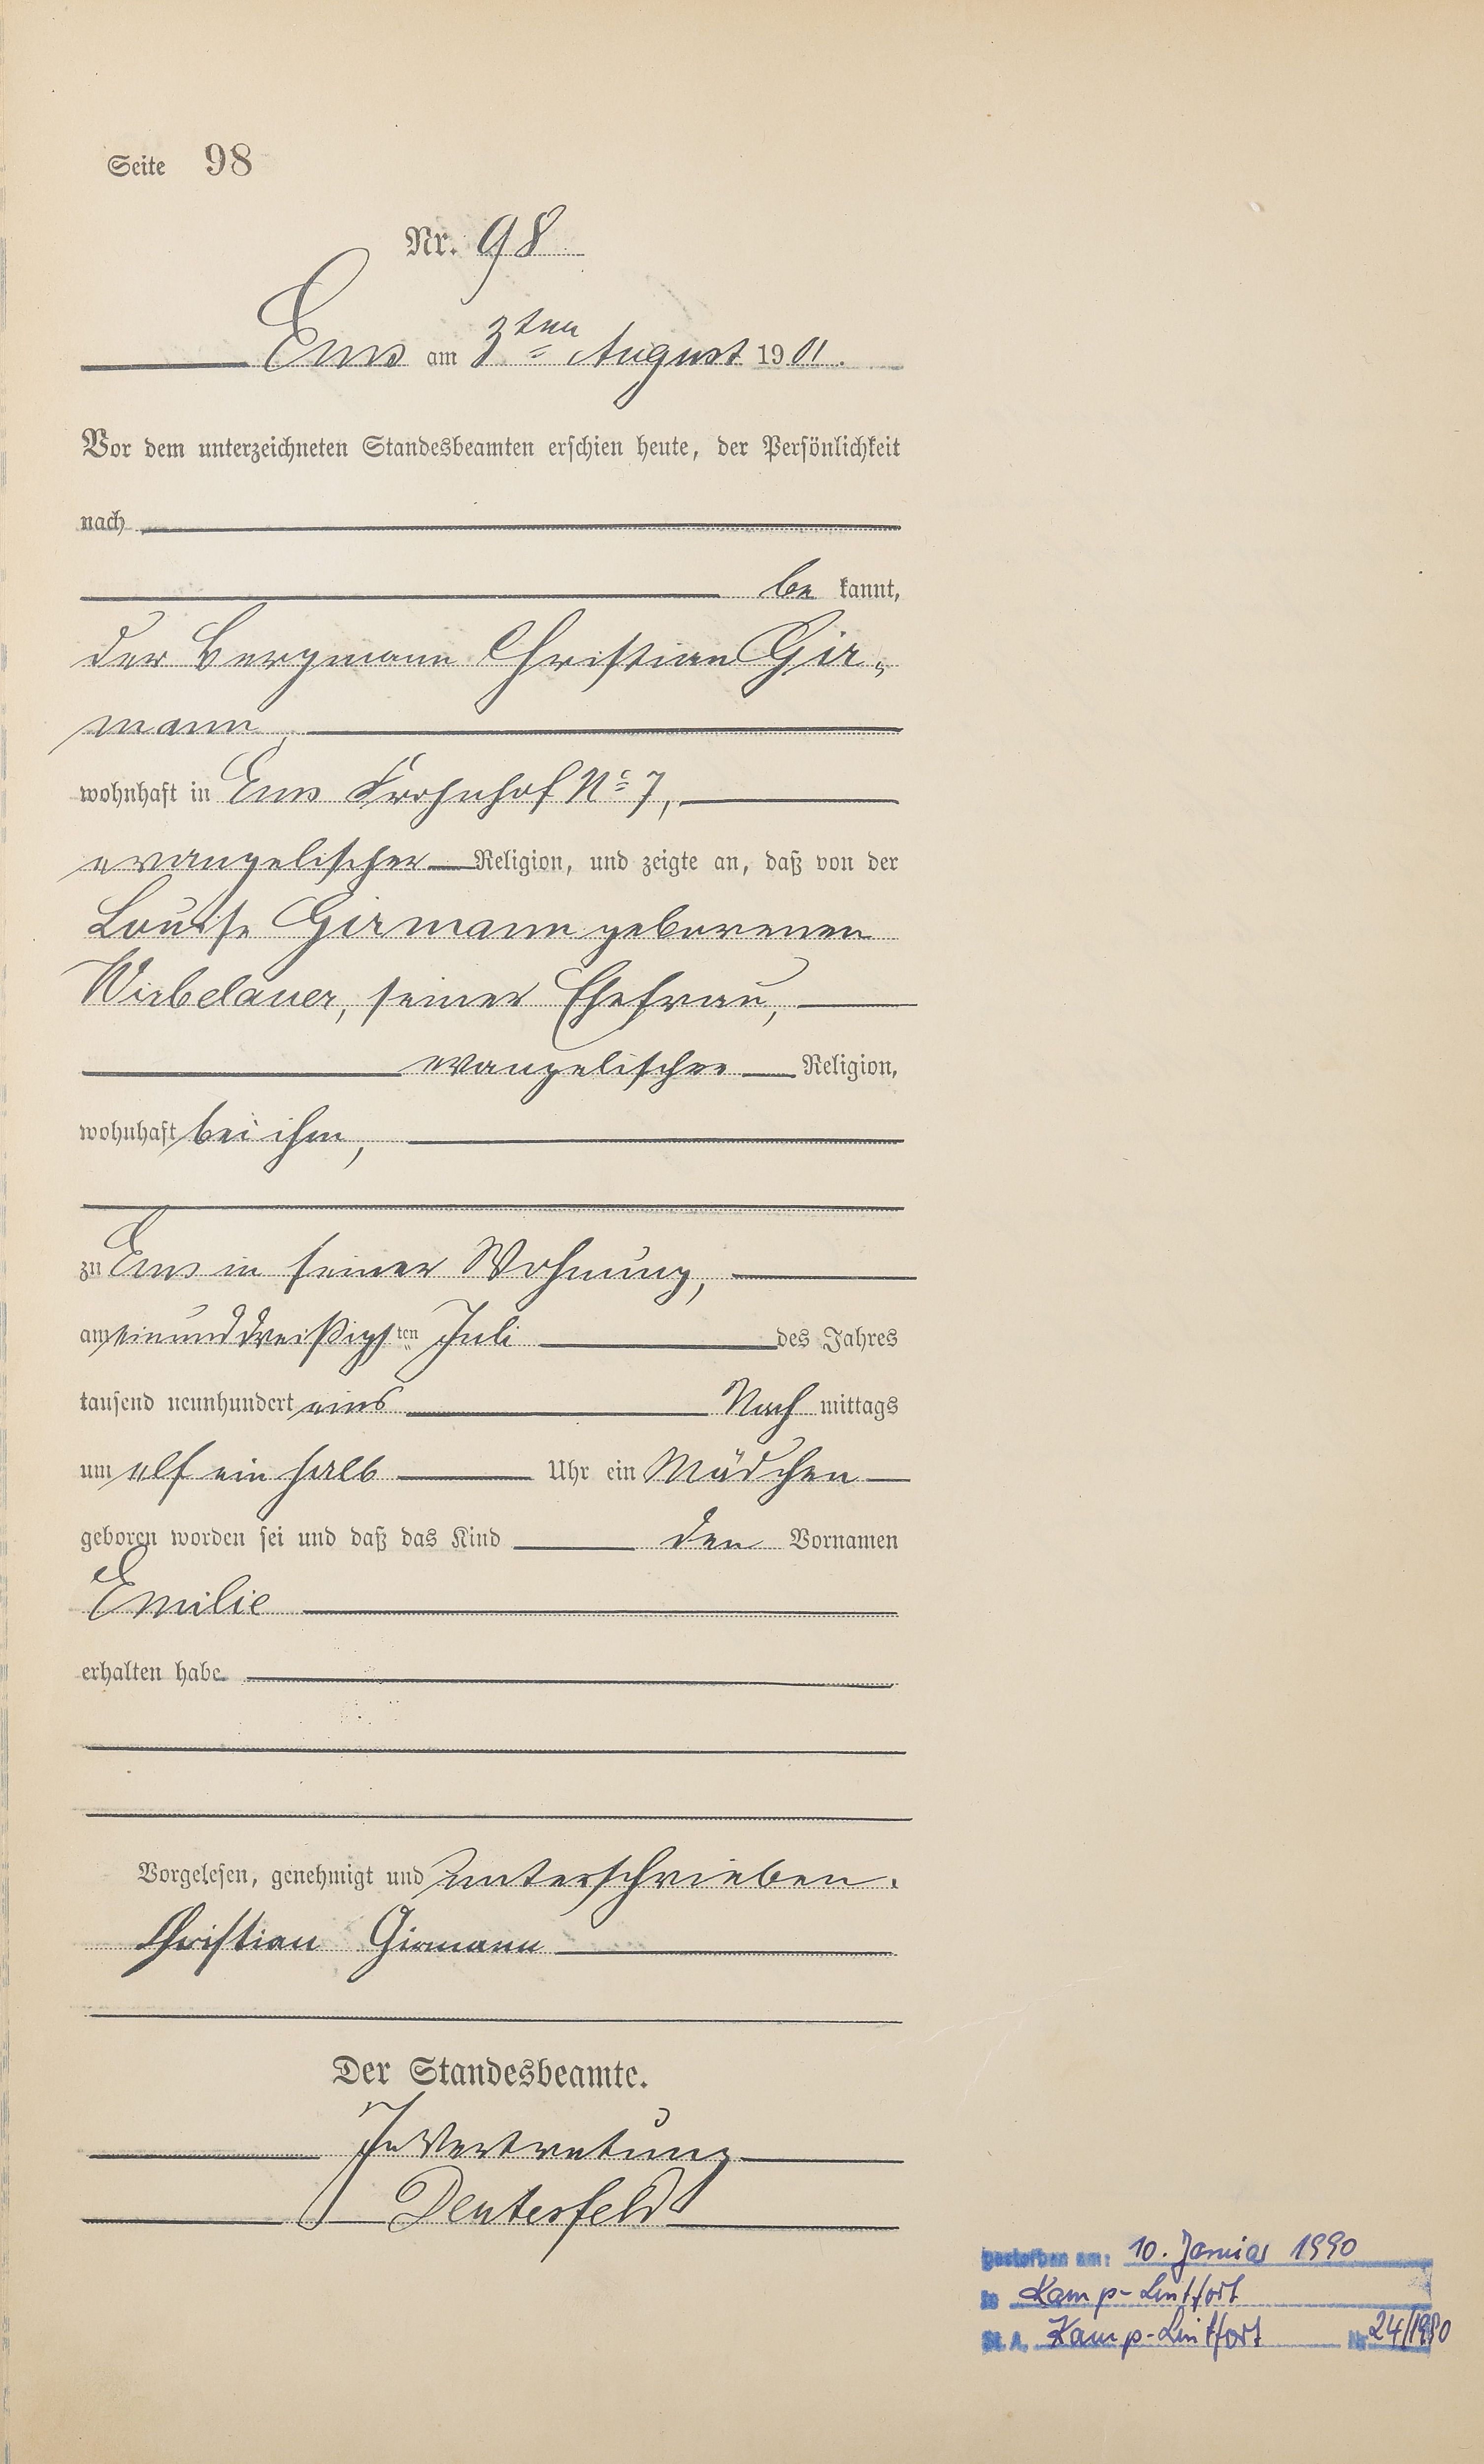 Seite 98
Nr. 98
Ems am 3ten August 1901.
Vor dem unterzeichneten Standesbeamten erschien heute, der Persönlichkeit
nach
be kannt,
der Bergmann Christian Gir„
mann,
wohnhaft in Ems Frohnhof No 7,
evangelischer Religion, und zeigte an, daß von der
Louise Girmann geborenen
Wirbelauer, seiner Ehefrau,
evangelischer Religion,
wohnhaft bei ihm,
zu Ems in seiner Wohnung,
am einunddreißigsten Juli des Jahres
tausend neunhundert eins Nach mittags
um elf ein halb Uhr ein Mädchen
geboren worden sei und daß das Kind den Vornamen
Emilie
erhalten habe.
Vorgelesen, genehmigt und unterschrieben.
Christian Girmann
Der Standesbeamte.
In Vertretung
gestorben am: 10. Januar 1990
in Kamp-Lintfort
St. A. Kamp-Lintfort Nr 24/1990